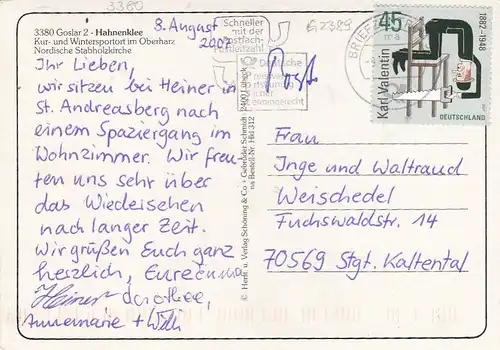 3380
3380 Goslar 2 - Hahnenklee
Kur- und Wintersportort im Oberharz
Nordische Stabholzkirche
8. August
2002
Ihr Lieben,
wir sitzen bei Heiner in
St. Andreasberg nach
einem Spaziergang im
Wohnzimmer. Wir freu-
ten uns sehr über
das Wiedersehen
nach langer Zeit.
Wir grüßen Euch ganz
herzlich, Eure
Heiner Dorothee,
Annemarie + Willi
© Herst. u. Verlag Schöning & Co + Gebrüder Schmidt
Bestell-Nr. 312
Schneller
mit der
Postfach-
leitzahl
Deutsche
G 2389
Post
BRIEFZENTRUM
45
Karl Valentin
1882-1948
DEUTSCHLAND
Frau
Inge und Waltraud
Weischedel
Fuchswaldstr. 14
70569 Stgt. Kaltental